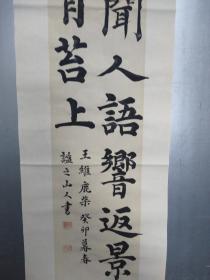 聞人語響返景
青苔上
王維鹿柴 癸卯暮春
之山人書